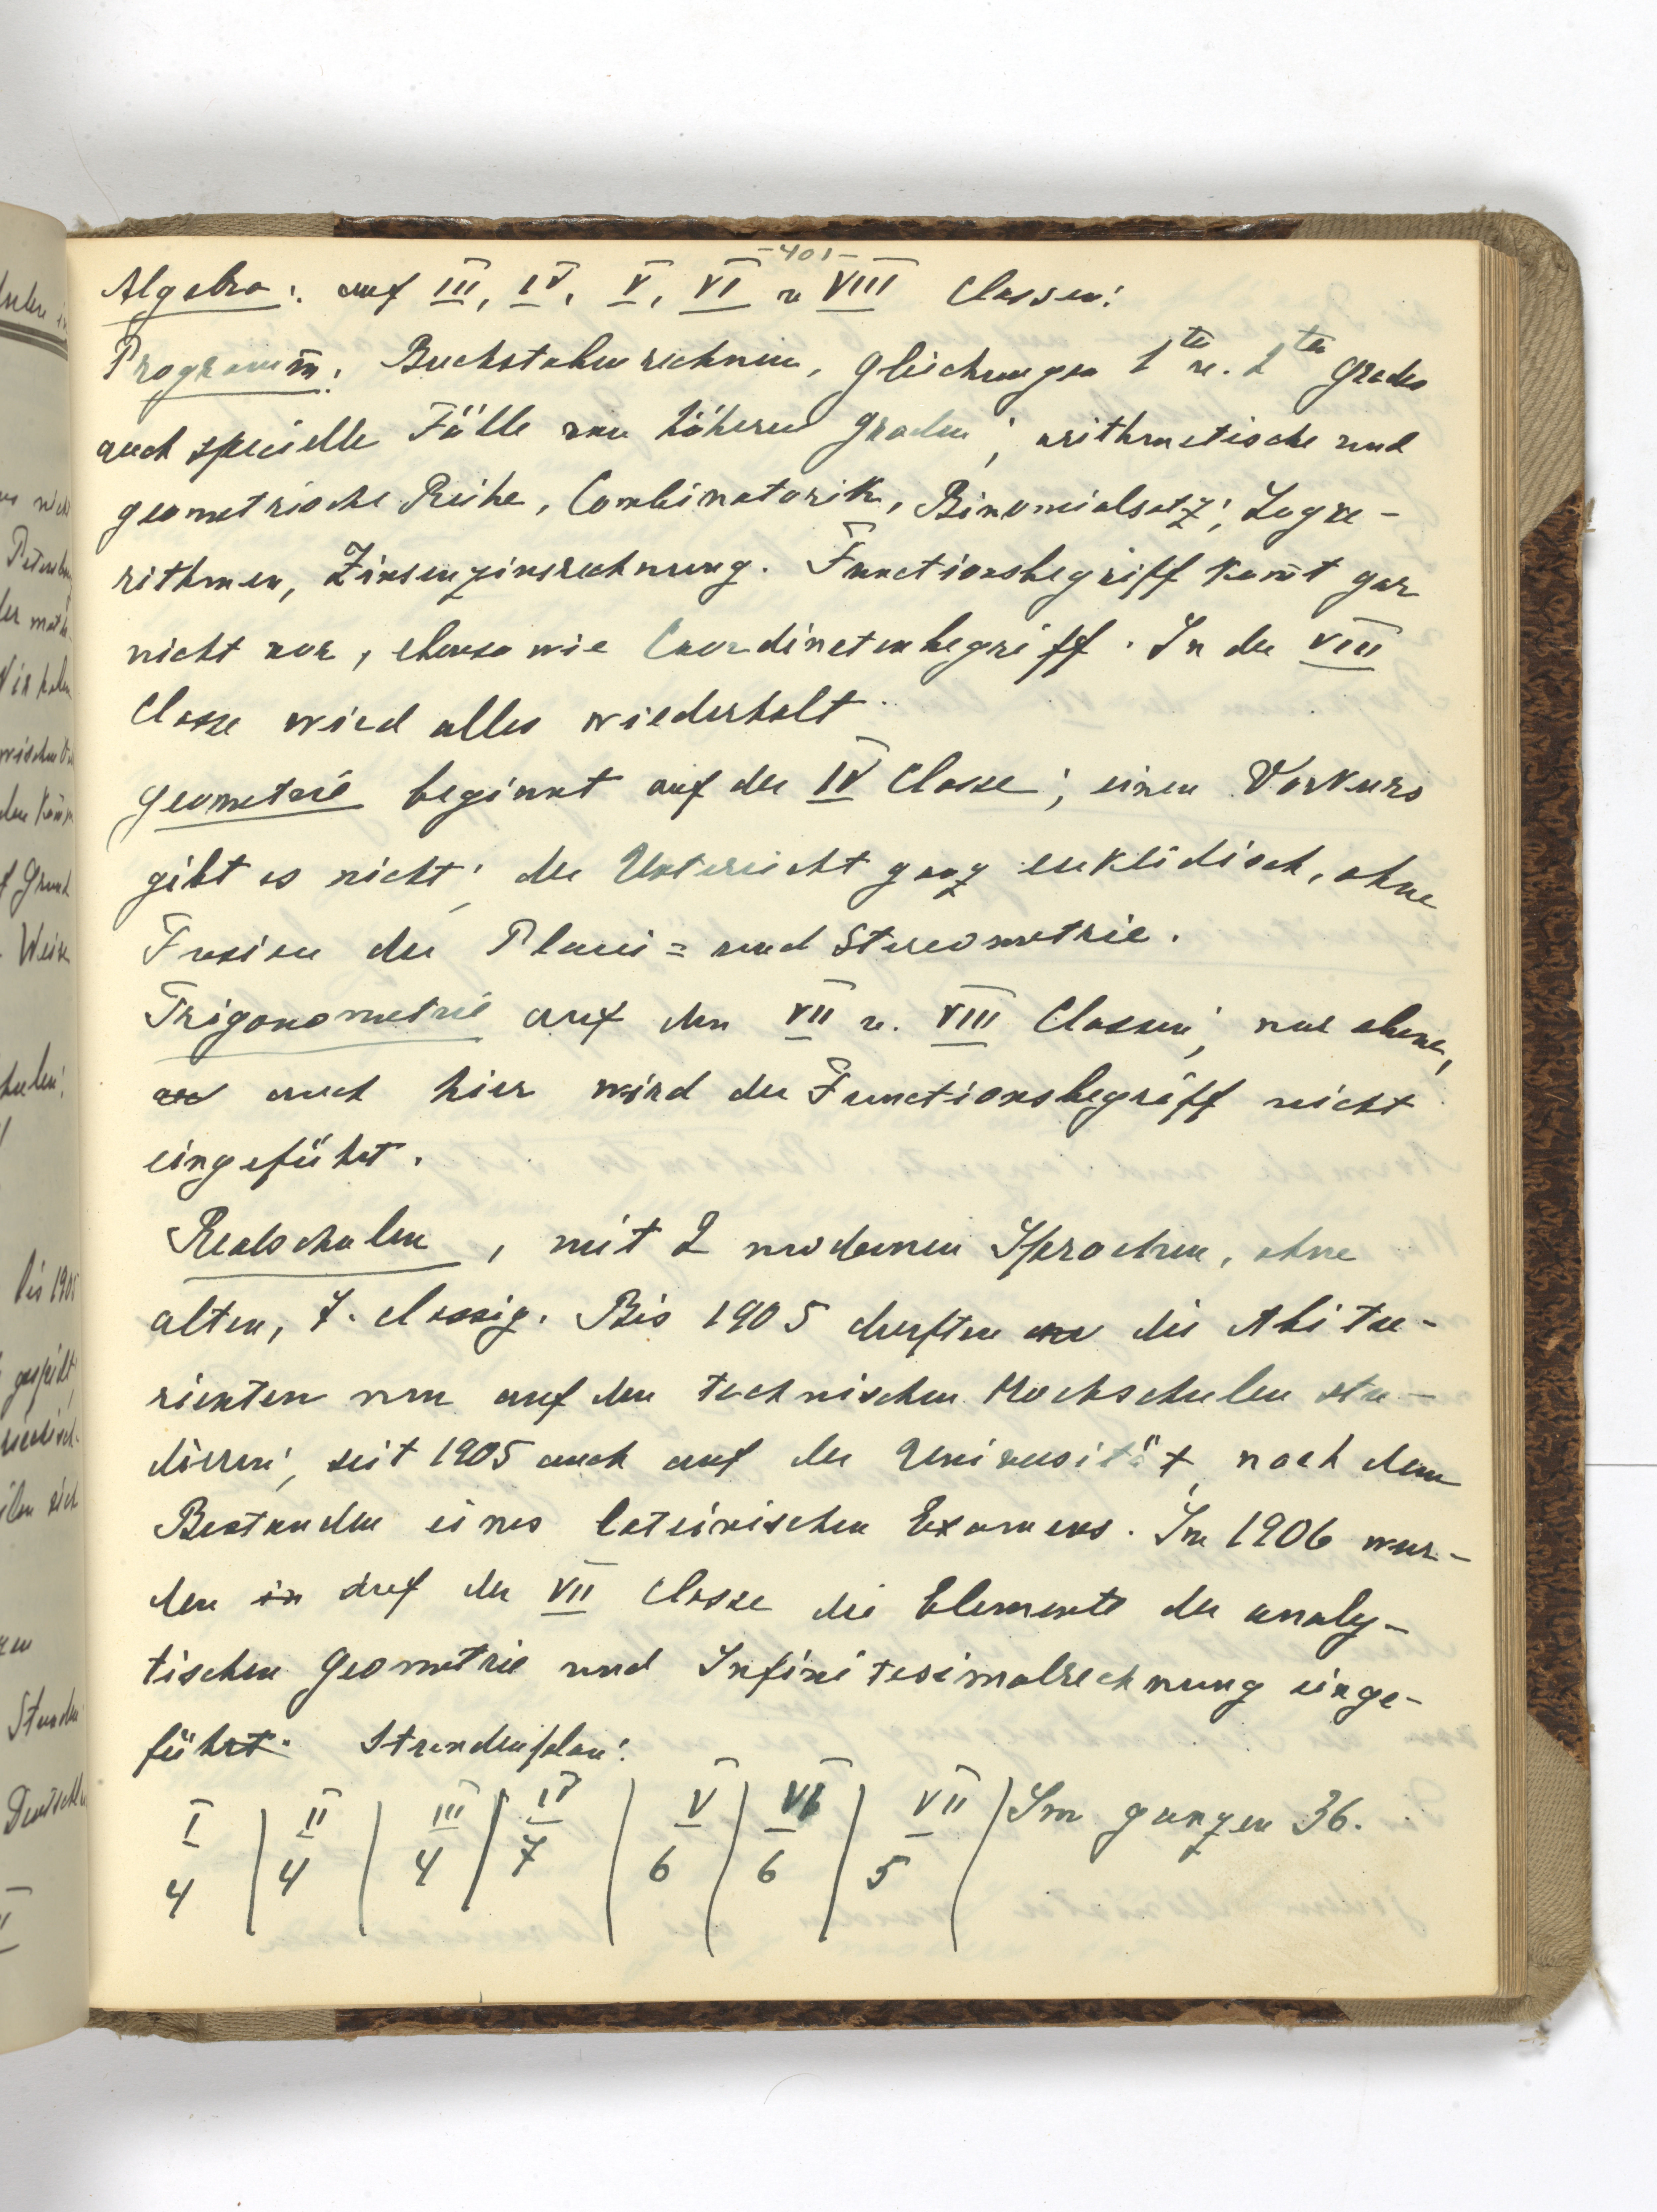 -401-
Algebra: auf III, IV, V, VI u VIII Classen:
Programm: Buchstabenrechnen, Gleichungen 1ten u. 2ten Grades
auch specielle Fälle von höheren Graden; arithmetische und
geometrische Reihe, Combinatorik, Binomialsatz; Loga-
rithmen, Zinsenzinsrechnung. Functionsbegriff kom̄t gar
nicht vor, ebenso wie Coordinatenbegriff. In der VIII
Classe wird alles wiederholt.
Geometrie beginnt auf der IV Classe; einen Vorkurs
gibt es nicht; der Unterricht ganz euklidisch, ohne
Fusion der Plani= und Stereometrie.
Trigonometrie auf den VII u. VIII Classen; nur ebene,
auch hier wird der Functionsbegriff nicht
eingeführt.
Realschulen, mit 2 modernen Sprachen, ohne
alten, 7. classig. Bis 1905 durften die Abitu-
rienten nur auf den technischen Hochschulen stu-
dieren; seit 1905 auch auf der Universität, nach dem
Bestanden eines lateinischen Examens. Im 1906 wur-
den in auf der VII Classe die Elemente der analy-
tischen Geometrie und Infinitesimalrechnung einge-
führt. Stundenplan:
I | II | III | IV | V | VI | VII | Im ganzen 36.
4 | 4 | 4 | 7 | 6 | 6 | 5